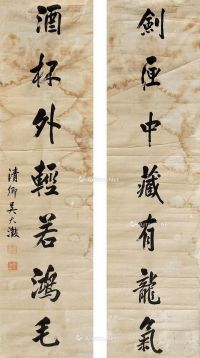 劍匣中藏有龍氣
酒杯外輕若鴻毛
清卿吳大澂